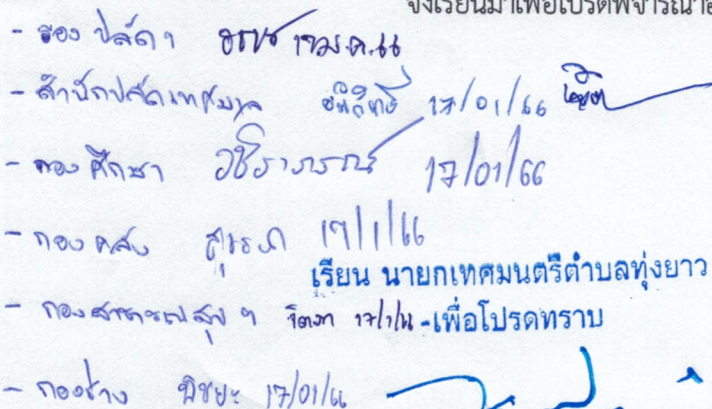 จึงเรียนมาเพื่อโปรดพิจารณา
- รองปลัดฯ 17 ม.ค. 66
- สำนักปลัดเทศบาล 17/01/66
- กองศึกษา วชิราภรณ์ 17/01/66
- กองคลัง 17/1/66
เรียน นายกเทศมนตรีตำบลทุ่งยาว
- กองสาธารณสุขฯ จิดาภา 17/1/66
-เพื่อโปรดทราบ
- กองช่าง พิชยะ 17/01/66